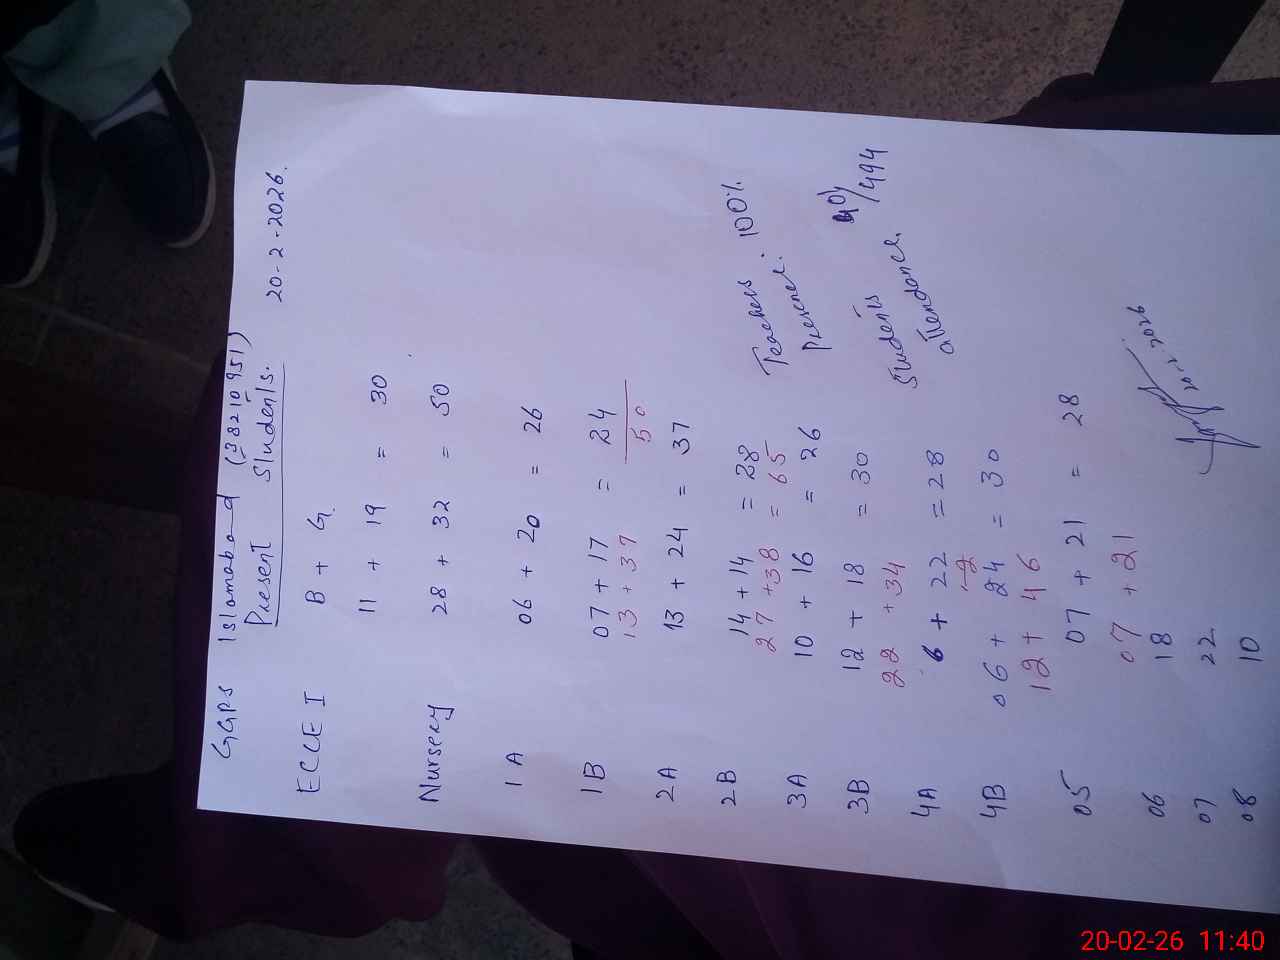 GGPS Islamabad (38210951)
Present Students. 20-2-2026.
ECCE I B + G.
11 + 19 = 30
Nursery 28 + 32 = 50
1 A 06 + 20 = 26
1B 07 + 17 = 24
13 + 37 50
2A 13 + 24 = 37
2B 14 + 14 = 28
27 + 38 = 65
3A 10 + 16 = 26
3B 12 + 18 = 30
22 + 34
4A 6 + 22 = 28
4B 06 + 24 = 30
12 + 46
05 07 + 21 = 28
07 + 21
06 18
07 22
08 10
Teachers 100%
Presence.
Students /494
attendance.
20.2.2026
20-02-26 11:40